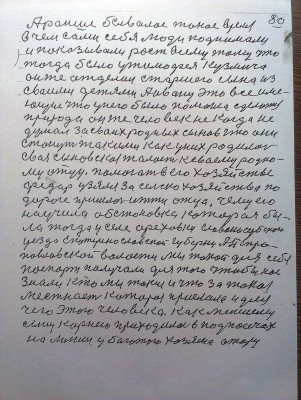 80
А раньше бывалое такое время
в чем сами себя люди поднимали
и показывали рост всему тому что
тогда было у тилиодея Кузмича
он же отделил старшего сына из
своими детями Ивану это все име
ющи что у него было помога сделать
природа он же человек не когда не
думал за своих родных сынов что они
станут такими как у них родилог
своя сыновская талант к своему родно
му отцу. помогать в его хозяйстве
Федар узял за селско хозяйства по
дороге пришлось итти отца, чему его
научила обстоновка которая бы
ла тогда у селе ореховки славяносербского
уезда Екатиринославской губерни Петро
павловской волости мы такой для себя
поспорт получали для того чтобы нас
знали кто мы такие и что за такая
местнает которая приехала и для
чего этого человека. Как меньшему
сыну Корнею приходилось в подпосечах
на линии у богатого хозяина отару